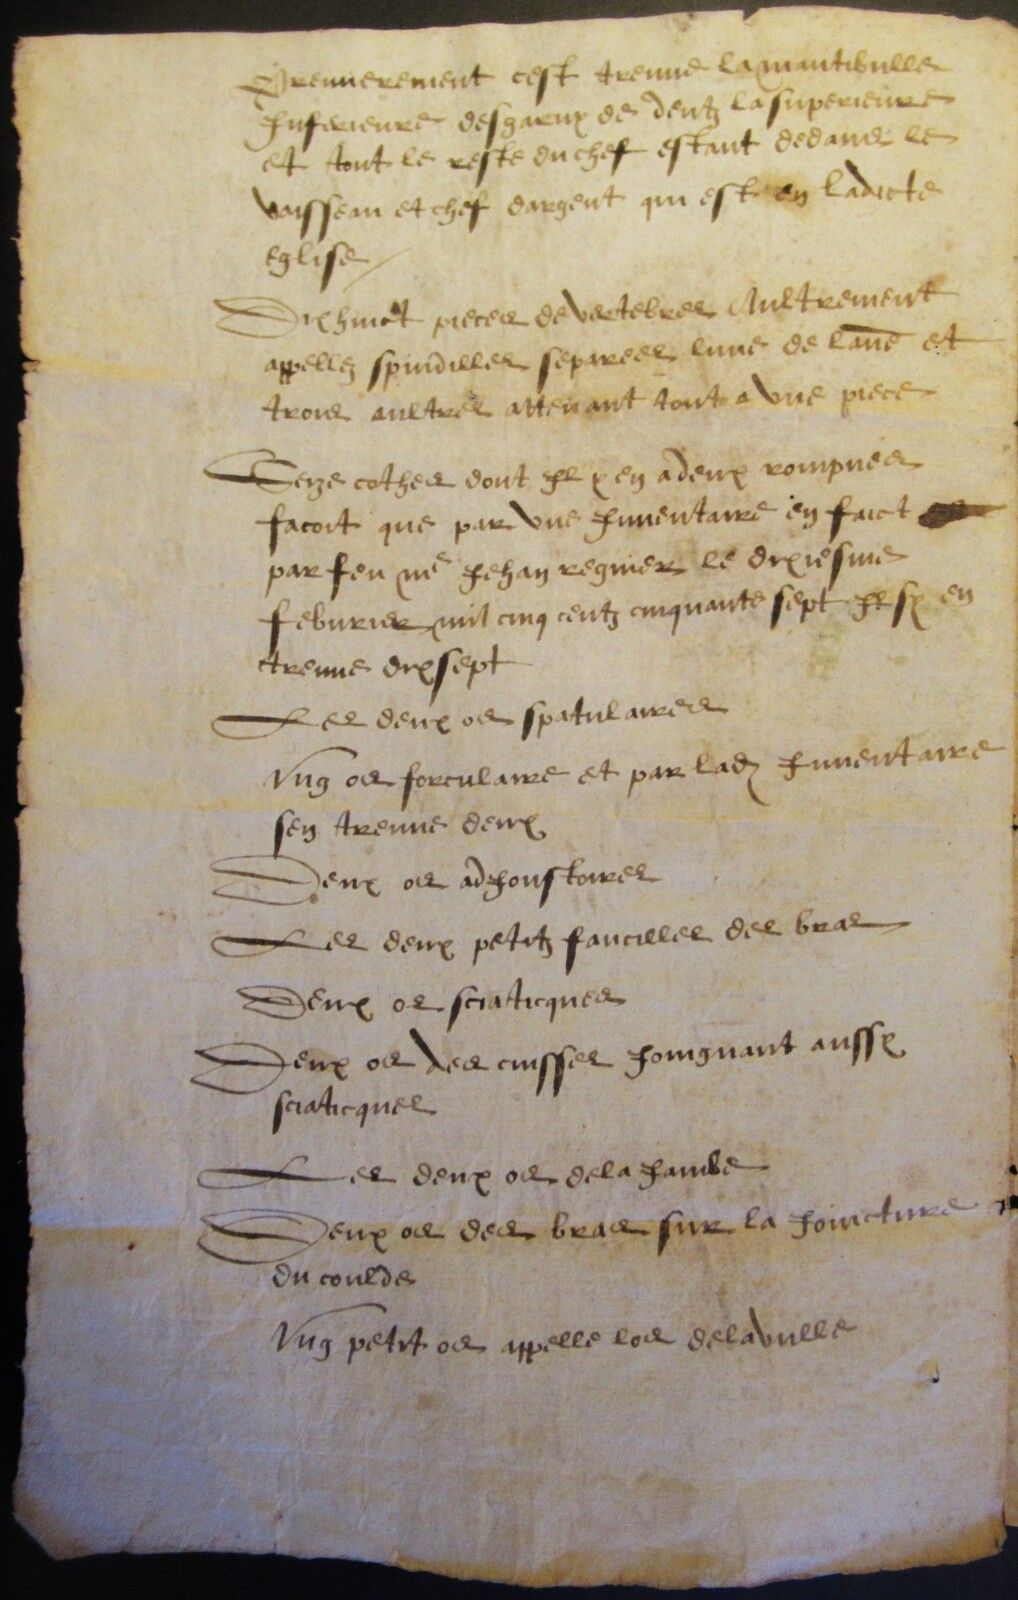 Premierement cest treuve la mantibulle
Inferieure desgarnye de dentz la superieure
et tout le reste du chef estant dedans le
vaisseau et chef dargent qui est en ladicte
eglise
Dixhuict pieces de vertebres Aultrement
appellez spindilles separees lune de laue et
trois aultres attenant tout a une piece
Seize costes dont Il y en a deux rompues
facoit que par une Inventaire en faict
par feu me Jehan regnier le dixiesme
febvrier mil cinq centz cinquante sept Il sy en
treuve dixsept
Les deux os spatulaires
Ung os forculaire et par lad Inventaire
sen treuve deux
Deux os adjoustoires
Les deux petitz faucilles des bras
Deux os sciaticques
Deux os des cuisses Joingnant aussy
sciaticques
Les deux os de la Jambe
Deux os des bras sur la Joincture
du coulde
Ung petit os appelle los de lavulle